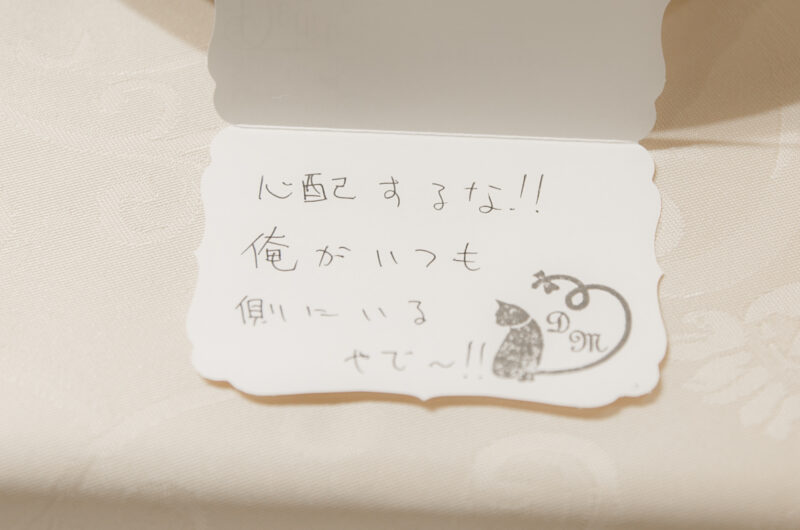 心配するな!!
俺がいつも
側にいる
やで〜!!
D M